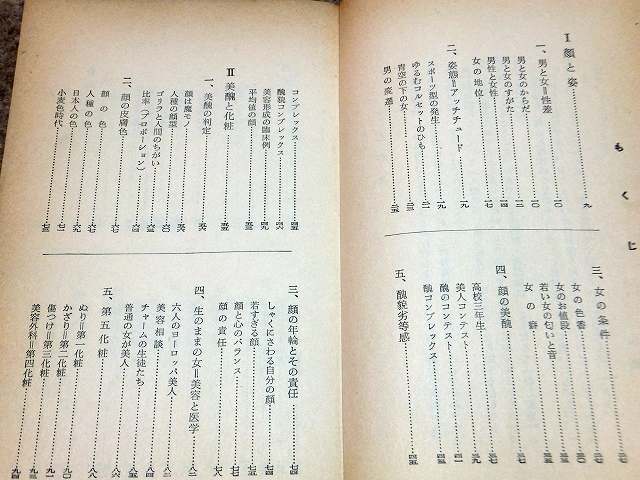 もくじ
Ⅰ 顔と姿………九
一、男と女＝性差………一〇
男と女のからだ………一〇
男と女のすがた………一四
男性と女性………一七
女の地位
二、姿態＝アッチチュード………一九
スポーツ型の発生………一九
ゆるむコルセットのひも………二一
青空の下の女
男の変遷………二五
三、女の条件………二七
女の色香………二七
女のお値段
若い女の匂いと音
女の齢
四、顔の美醜………三七
高校三年生………三七
美人コンテスト………三九
醜のコンテスト………四一
醜コンプレックス
五、醜貌劣等感………四五
コンプレックス………四五
醜貌コンプレックス………四六
美容形成の臨床例………四九
平均値の顔
Ⅱ 美醜と化粧………五五
一、美醜の判定………五六
顔は魔モノ………五六
人種の顔型
ゴリラと人間のちがい………六三
比率（プロポーション）………六五
二、顔の皮膚色………六七
顔の色………六七
人種の色
日本人の色………六九
小麦色時代………七一
三、顔の年輪とその責任………七四
しゃくにさわる自分の顔………七四
若すぎる顔………七五
顔と心のバランス………七七
顔の責任………七八
四、生のままの女＝美容と医学………八二
六人のヨーロッパ美人………八二
美容相談………八四
チャームの生徒たち………八五
普通の女が美人………八六
五、第五化粧………八八
ぬり＝第一化粧………八八
かざり＝第二化粧………九〇
傷つけ＝第三化粧………九一
美容外科＝第四化粧………九四